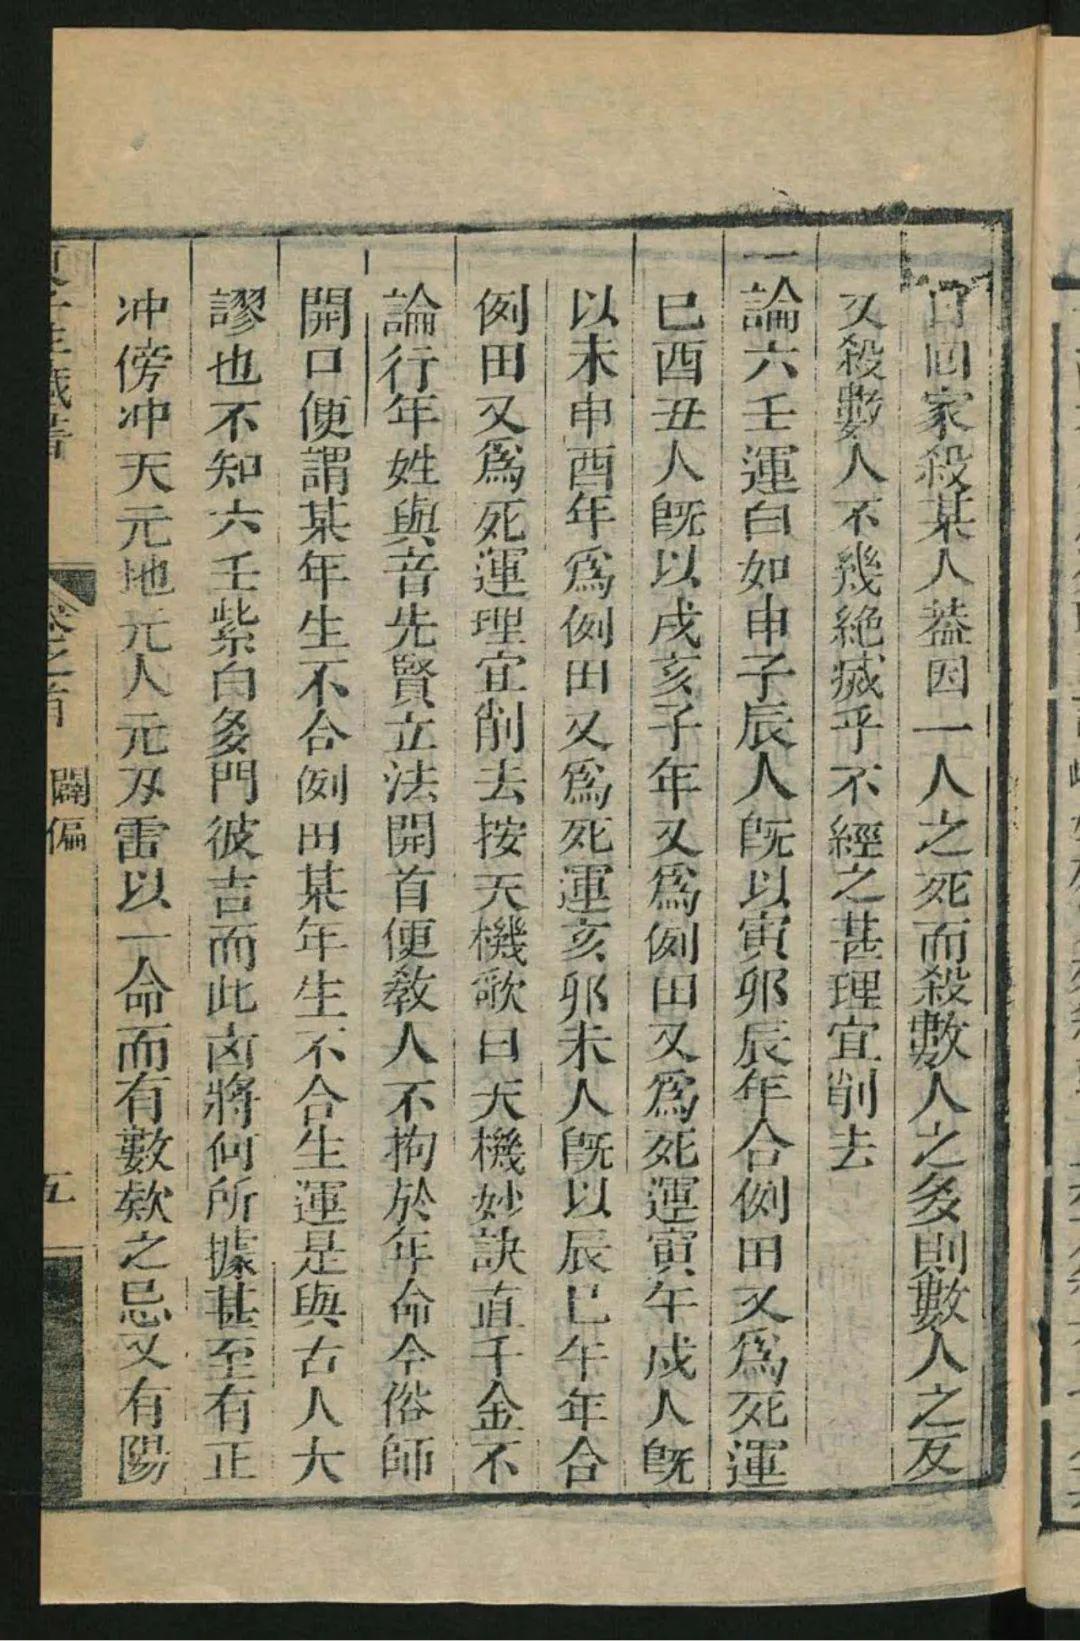 日回家殺某人葢因一人之死而殺數人之多則數人之友
又殺數人不幾絶滅乎不經之甚理宜削去
一論六壬運白如申子辰人旣以寅卯辰年合例田又爲死運
巳酉丑人旣以戌亥子年又爲例田又爲死運寅午戌人旣
以未申酉年爲例田又爲死運亥卯未人旣以辰巳午年合
例田又爲死運理宜削去按天機歌曰天機妙訣直千金不
論行年姓與音先賢立法開首便教人不拘於年命今俗師
開口便謂某年生不合例田某年生不合生運是與古人大
謬也不知六壬紫白多門彼吉而此凶將何所據甚至有正
冲傍冲天元地元人元刃雷以一命而有數欵之忌又有陽
卷之首
闢偏
五